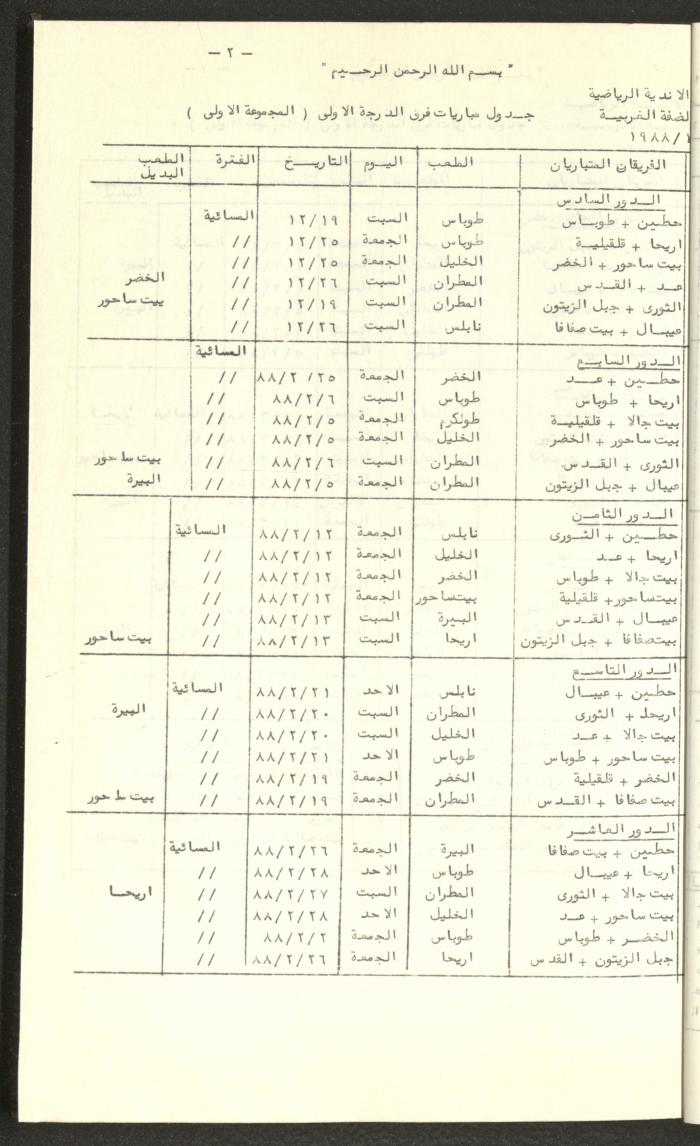 - ٢ -
" بسم الله الرحمن الرحيم "
الاندية الرياضية
لضفة الغربية جدول مباريات فرق الدرجة الاولى ( المجموعة الاولى )
١٩٨٨/١
الفريقان المتباريان الملعب اليوم التاريخ الفترة الملعب البديل
الدور السادس
حطين + طوباس طوباس السبت ١٢/١٩ المسائية
اريحا + قلقيلية طوباس الجمعة ١٢/٢٥ //
بيت ساحور + الخضر الخليل الجمعة ١٢/٢٥ //
عد + القدس المطران السبت ١٢/٢٦ // الخضر
الثورى + جبل الزيتون المطران السبت ١٢/١٩ // بيت ساحور
عيبال + بيت صفافا نابلس السبت ١٢/٢٦ //
الدور السابع المسائية
حطين + عد الخضر الجمعة ٨٨/٢/٢٥ //
اريحا + طوباس طوباس السبت ٨٨/٢/٦ //
بيت جالا + قلقيلية طولكرم الجمعة ٨٨/٢/٥ //
بيت ساحور + الخضر الخليل الجمعة ٨٨/٢/٥ //
الثورى + القدس المطران السبت ٨٨/٢/٦ // بيت ساحور
عيبال + جبل الزيتون المطران الجمعة ٨٨/٢/٥ // البيرة
الدور الثامن
حطين + الثورى نابلس الجمعة ٨٨/٢/١٢ المسائية
اريحا + عد الخليل الجمعة ٨٨/٢/١٢ //
بيت جالا + طوباس الخضر الجمعة ٨٨/٢/١٢ //
بيتساحور + قلقيلية بيتساحور الجمعة ٨٨/٢/١٢ //
عيبال + القدس البيرة السبت ٨٨/٢/١٣ //
بيتصفافا + جبل الزيتون اريحا السبت ٨٨/٢/١٣ // بيت ساحور
الدور التاسع
حطين + عيبال نابلس الاحد ٨٨/٢/٢١ المسائية
اريحا + الثورى المطران السبت ٨٨/٢/٢٠ // البيرة
بيت جالا + عد الخليل السبت ٨٨/٢/٢٠ //
بيت ساحور + طوباس طوباس الاحد ٨٨/٢/٢١ //
الخضر + قلقيلية الخضر الجمعة ٨٨/٢/١٩ //
بيت صفافا + القدس المطران الجمعة ٨٨/٢/١٩ // بيت ساحور
الدور العاشر
حطين + بيت صفافا البيرة الجمعة ٨٨/٢/٢٦ المسائية
اريحا + عيبال طوباس الاحد ٨٨/٢/٢٨ //
بيت جالا + الثورى المطران السبت ٨٨/٢/٢٧ // اريحا
بيت ساحور + عد الخليل الاحد ٨٨/٢/٢٨ //
الخضر + طوباس طوباس الجمعة ٨٨/٢/٢ //
جبل الزيتون + القدس اريحا الجمعة ٨٨/٢/٢٦ //